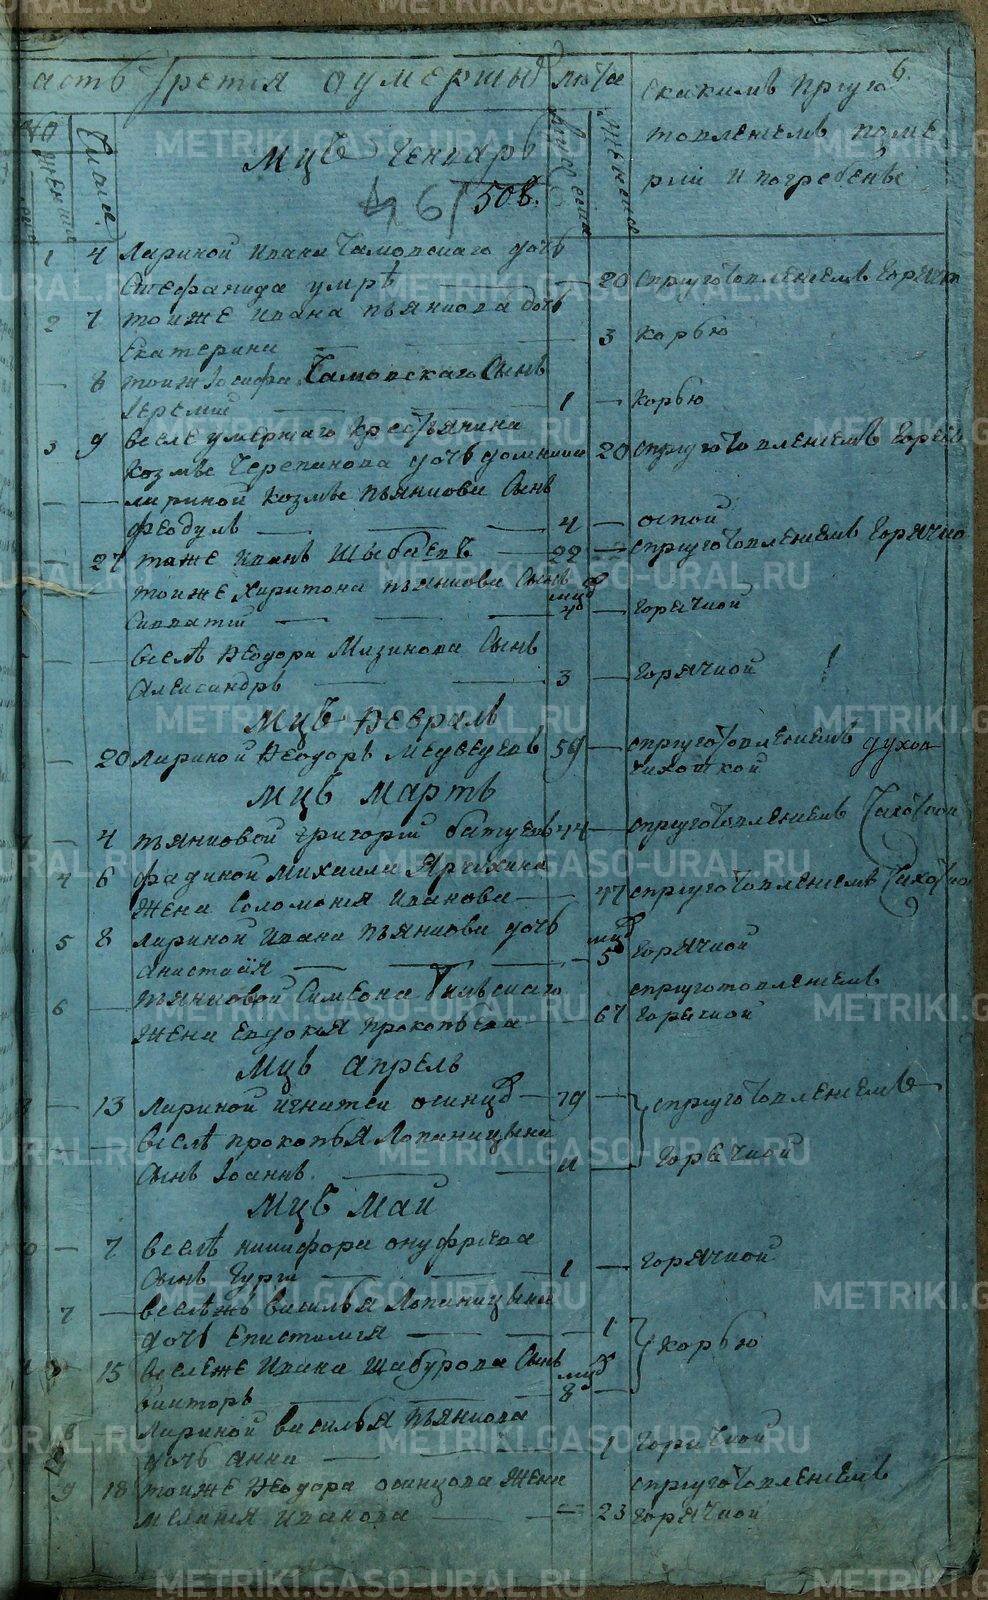 асть третія оумершыхъ
лѣта
скакимъ пригу
6.
топленіемъ поме
рли и погребены
Числа
Женска
Мцъ Генварь
461
508.
1 4 Лариной Ивана Чамовскаго дочь
Стефанида умрѣ 20 спригутопленіемъ горячк
2 7 тоиже Ивана Пьянкова дочь
Екатерина 3 корью
8 тоиж Іосифа Чамовскаго Сынъ
Іеремій 1 корью
3 9 вселе умершаго крестьянина
Козмы Черепанова дочь Домникия 20 спригутопленіемъ горяч
Лариной Козмы Пьянкова Сынъ
Феодулъ 4 оспой
27 тоже Иванъ Шыбаевъ 22 спригутопленіемъ горячко
тоиже Харитона Пьянкова Сынъ мцд
4 горячкой
вселѣ Феодора Мизинова Сынъ
Александръ 3 горячкой
Мцъ Февраль
20 Лариной Феодоръ Медведевъ 59 спригутопленіемъ духов
чихоткой
Мцъ Мартъ
4 Пьянковой Григорій Батуевъ 44 спригутопленіемъ чахоткой
4 6 Фадиной Михаила Ярыхина
жена Соломонія Иванова 47 спригутопленіемъ чахотко
5 8 Лариной Ивана Пьянкова дочь мцд
Анастасія 5 горячкой
6 Пьянковой Симеона Гилевскаго спригутопленіемъ
жена Евдокія Прокопьева 67 горячкой
Мцъ Апрель
13 Лариной Игнатей Осинцовъ 79 спригутопленіемъ
вселѣ Прокопья Лопаницына
Сынъ Іоаннъ 4 горячкой
Мцъ Май
7 вселѣ Никифора Онуфриева
Сынъ Гурій 1 горячкой
7 вселѣжъ Василья Лопаницына
дочь Епистимія 1 корью
15 всележе Ивана Шабурова Сынъ мцд
Викторъ 8
Лариной Василья Пьянкова
дочь Анна 1 горячкой
9 18 тоиже Феодора Осинцова жена спригутопленіемъ
Меланія Иванова 23 горячкой
METRIKI.GASO-URAL.RU